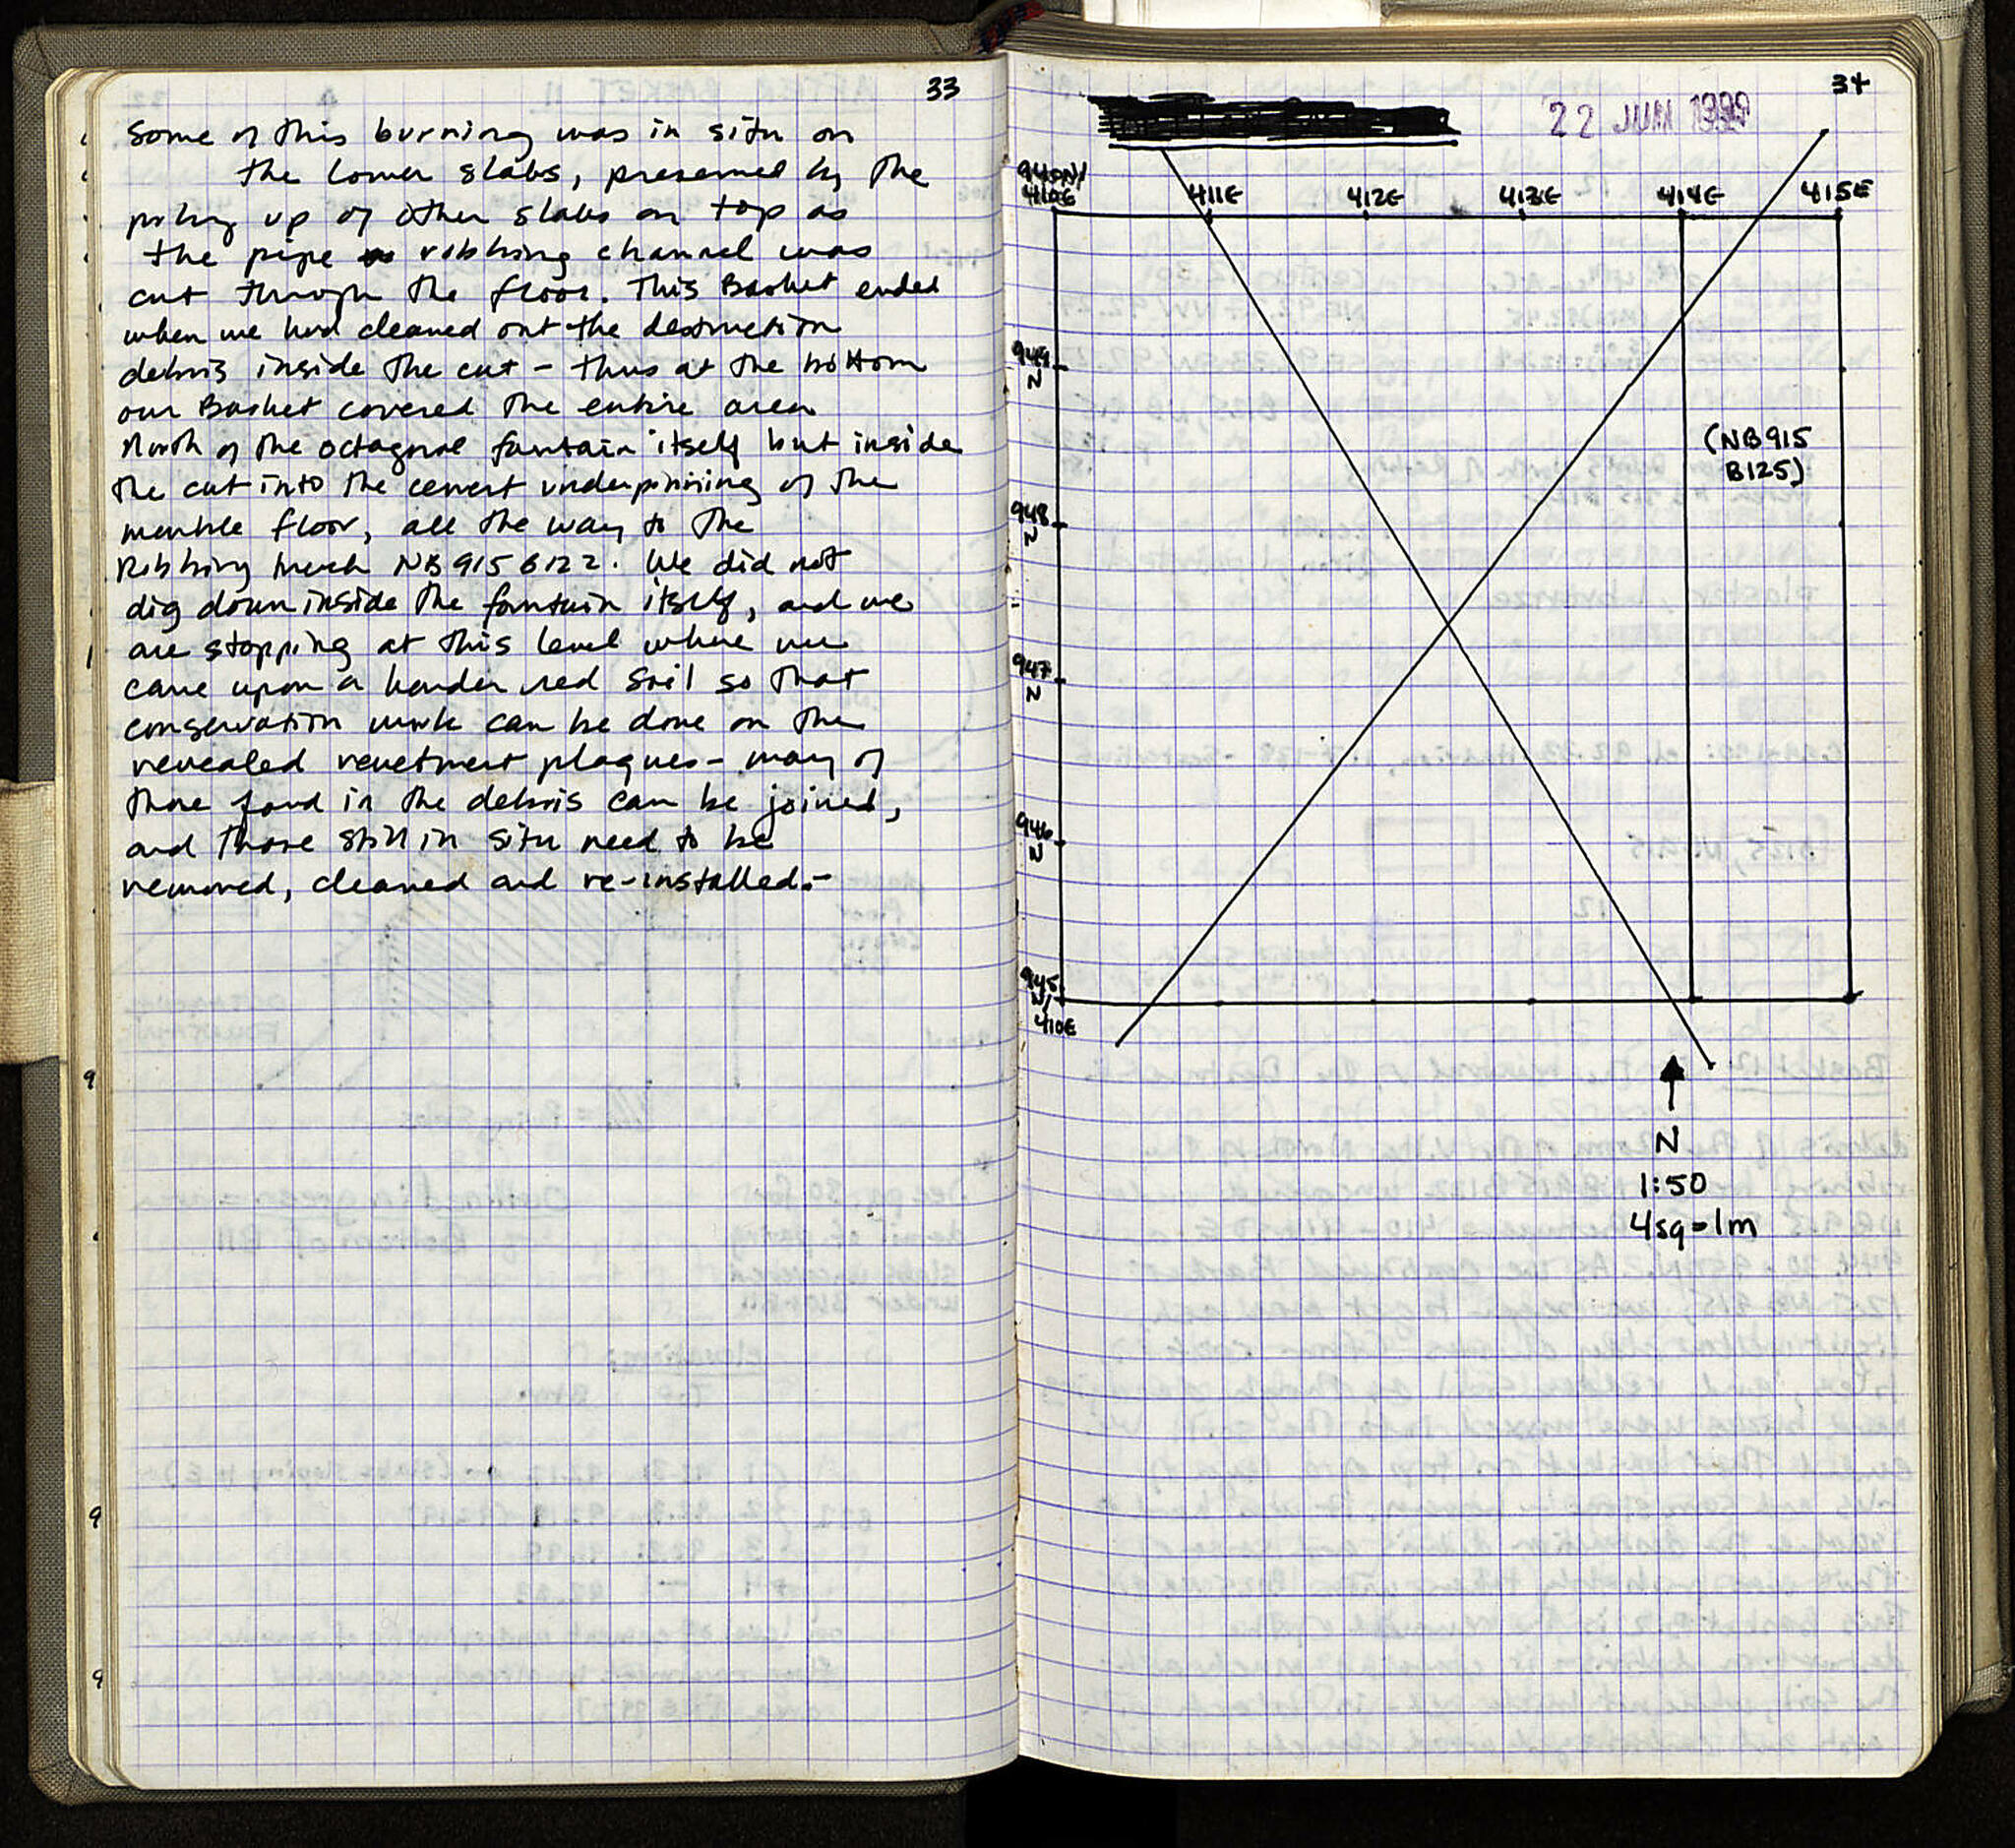 33
Some of this burning was in situ on
the lower slabs, preserved by the
piling up of other slabs on top as
the pipe robbing channel was
cut through the floor. This Basket ended
when we had cleaned out the destruction
debris inside the cut - thus at the bottom
our Basket covered the entire area
North of the octagonal fountain itself but inside
the cut into the cement underpinning of the
marble floor, all the way to the
Robbing trench NB915 B122. We did not
dig down inside the fountain itself, and we
are stopping at this level where we
came upon a harder red soil so that
conservation work can be done on the
revealed revetment plaques - many of
those found in the debris can be joined,
and those still in situ need to be
removed, cleaned and re-installed.-
34
22 JUN 1999
410E
411E
412E
413E
414E
415E
949
N
(NB915
B125)
948
N
947
N
946
N
945
N/
410E
N
1:50
4sq=1m